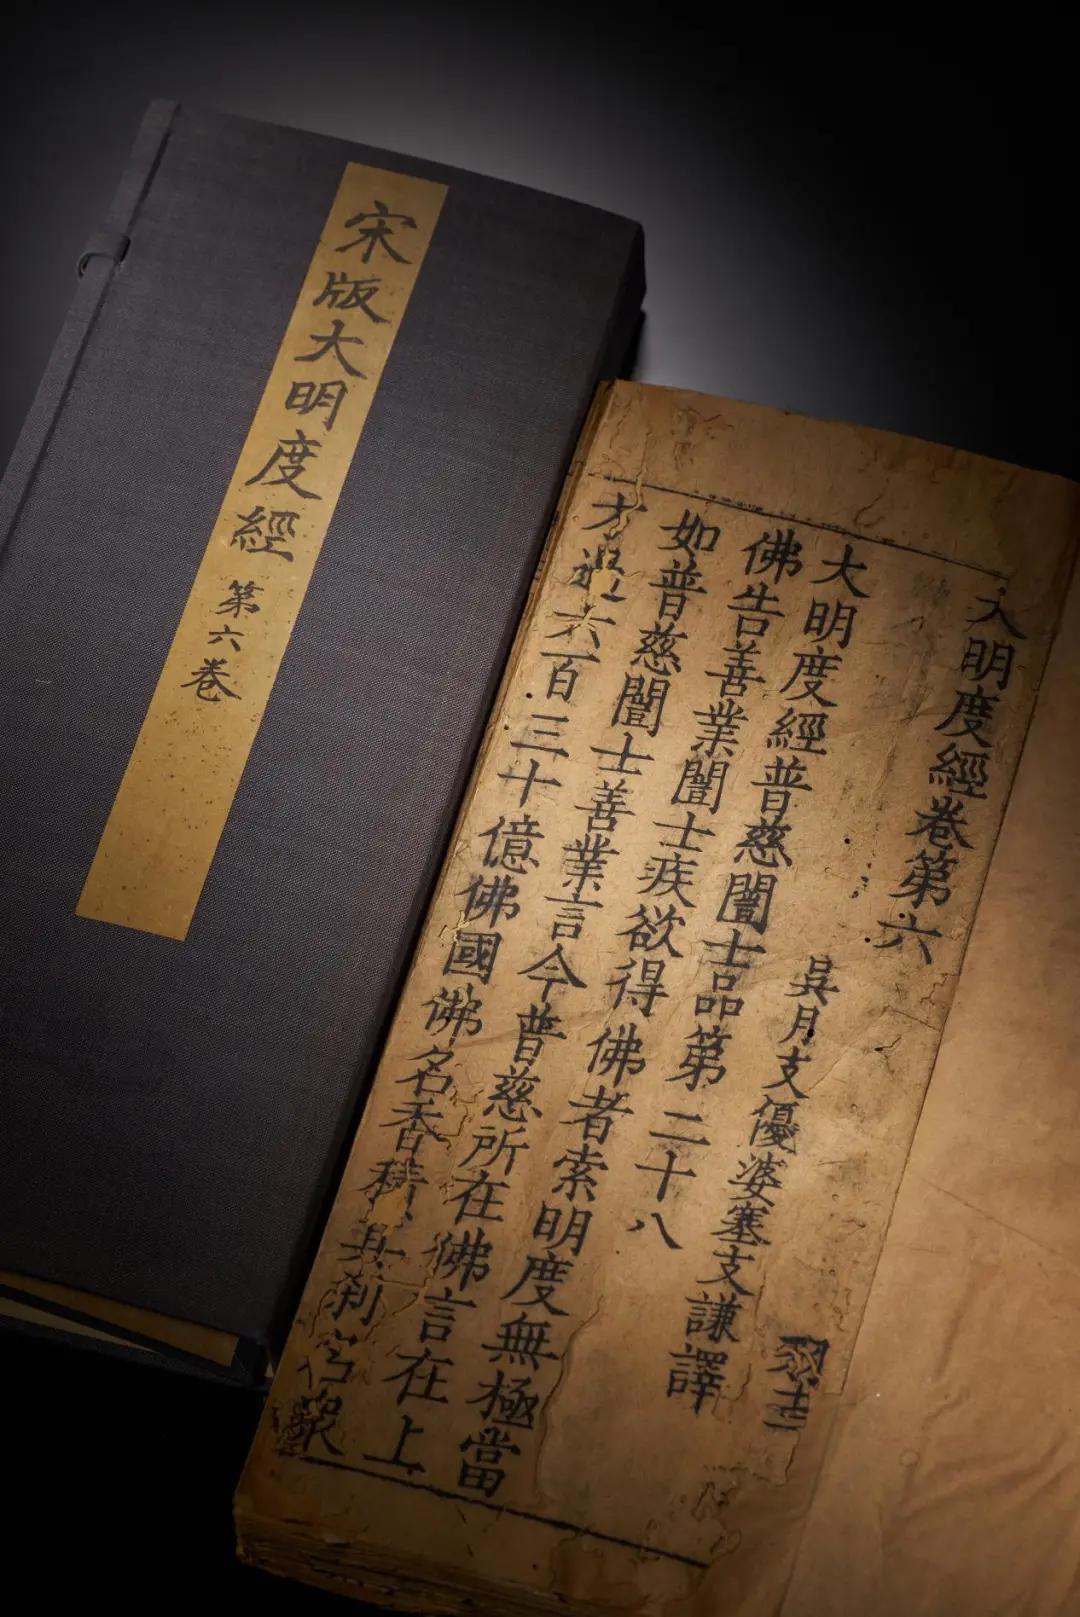 宋版大明度經 第六卷
大明度經卷第六
吳月支優婆塞支謙譯
大明度經普慈闓士品第二十八
佛告善業闓士疾欲得佛者索明度無極當
如普慈闓士善業言今普慈所在佛言在上
方過六百三十億佛國佛名香積其刹名眾